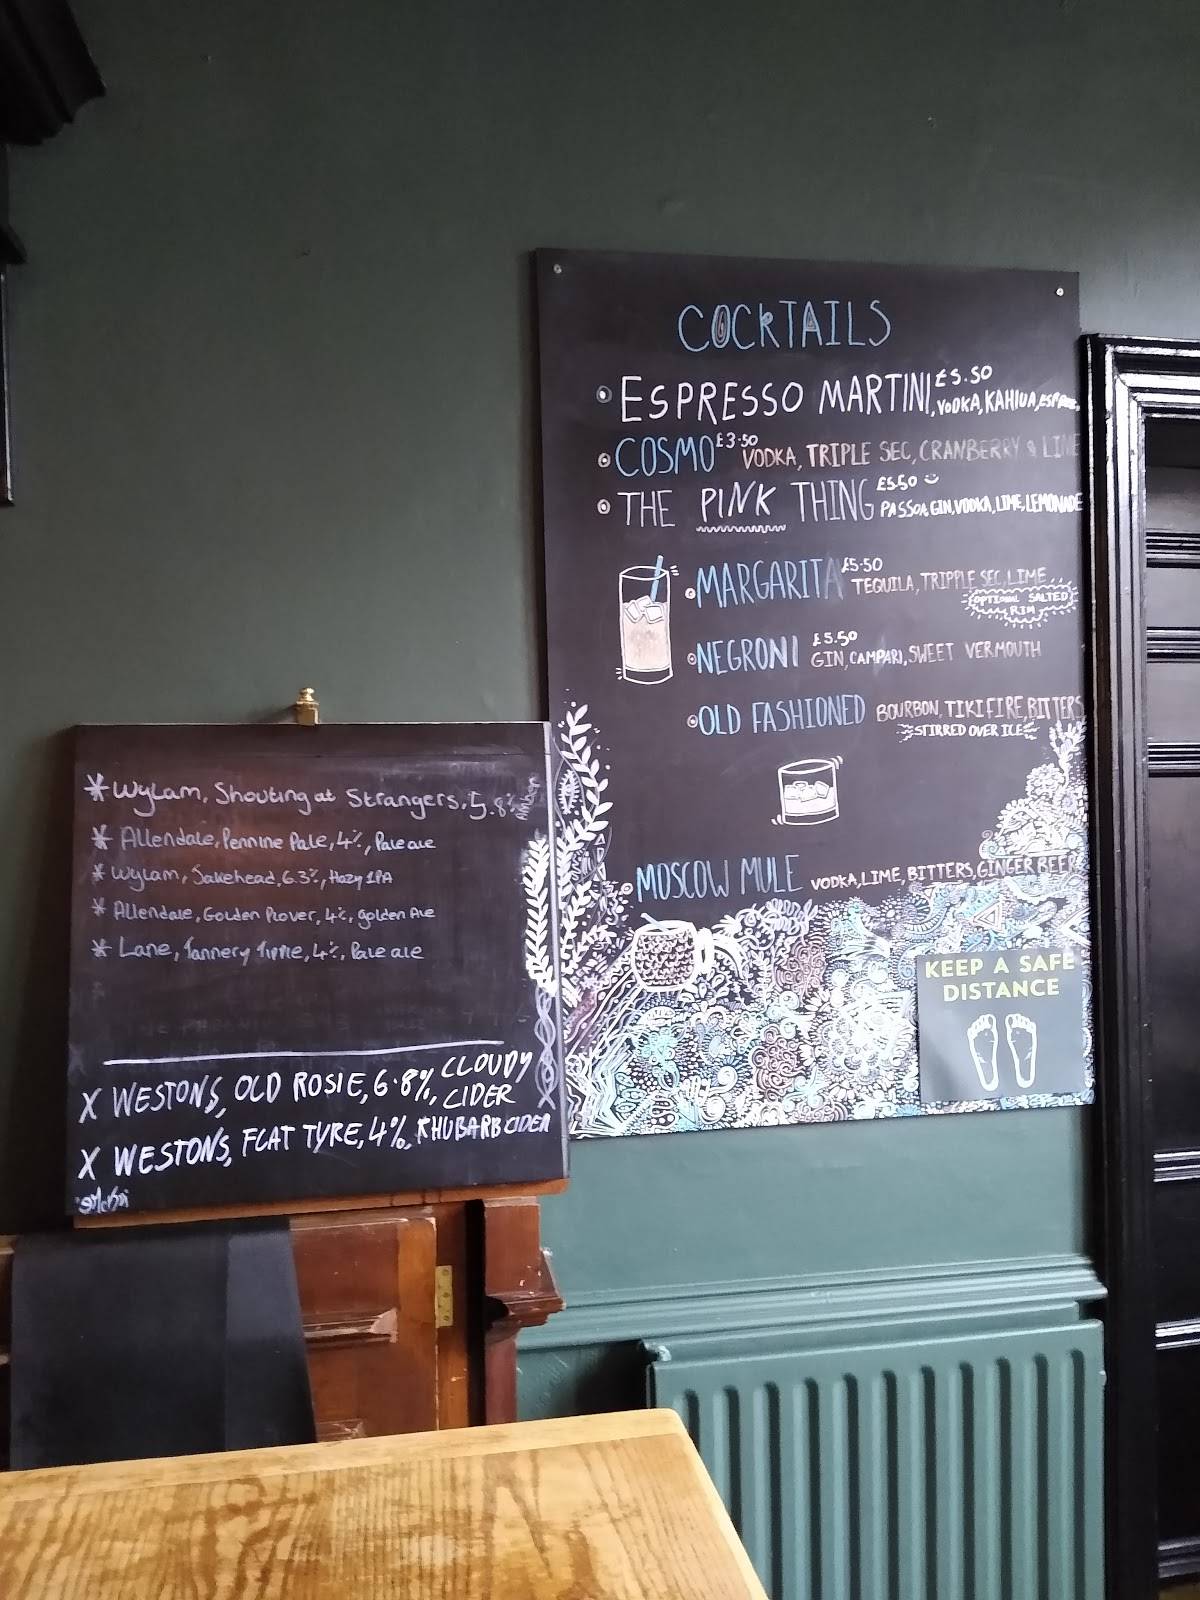 COCKTAILS
ESPRESSO MARTINI £5.50, VODKA, KAHLUA,
COSMO £3.50 VODKA, TRIPLE SEC, CRANBERRY & LIME
THE PINK THING £5.50 PASSOA, GIN, VODKA, LIME, LEMONADE
MARGARITA £5.50 TEQUILA, TRIPPLE SEC, LIME
OPTIONAL SALTED
RIM
NEGRONI £5.50 GIN, CAMPARI, SWEET VERMOUTH
OLD FASHIONED BOURBON, TIKI FIRE, BITTERS
STIRRED OVER ICE
MOSCOW MULE VODKA, LIME, BITTERS, GINGER BEER
KEEP A SAFE
DISTANCE
Wylam, Shouting at Strangers, 5.8% Amber
Allendale, Pennine Pale, 4%, Pale ale
Wylam, Jakehead, 6.3%, Hazy IPA
Allendale, Golden Plover, 4%, golden Ale
Lane, Tannery Tipple, 4%, Pale ale
X WESTONS, OLD ROSIE, 6.8%, CLOUDY CIDER
X WESTONS, FLAT TYRE, 4%, RHUBARB CIDER